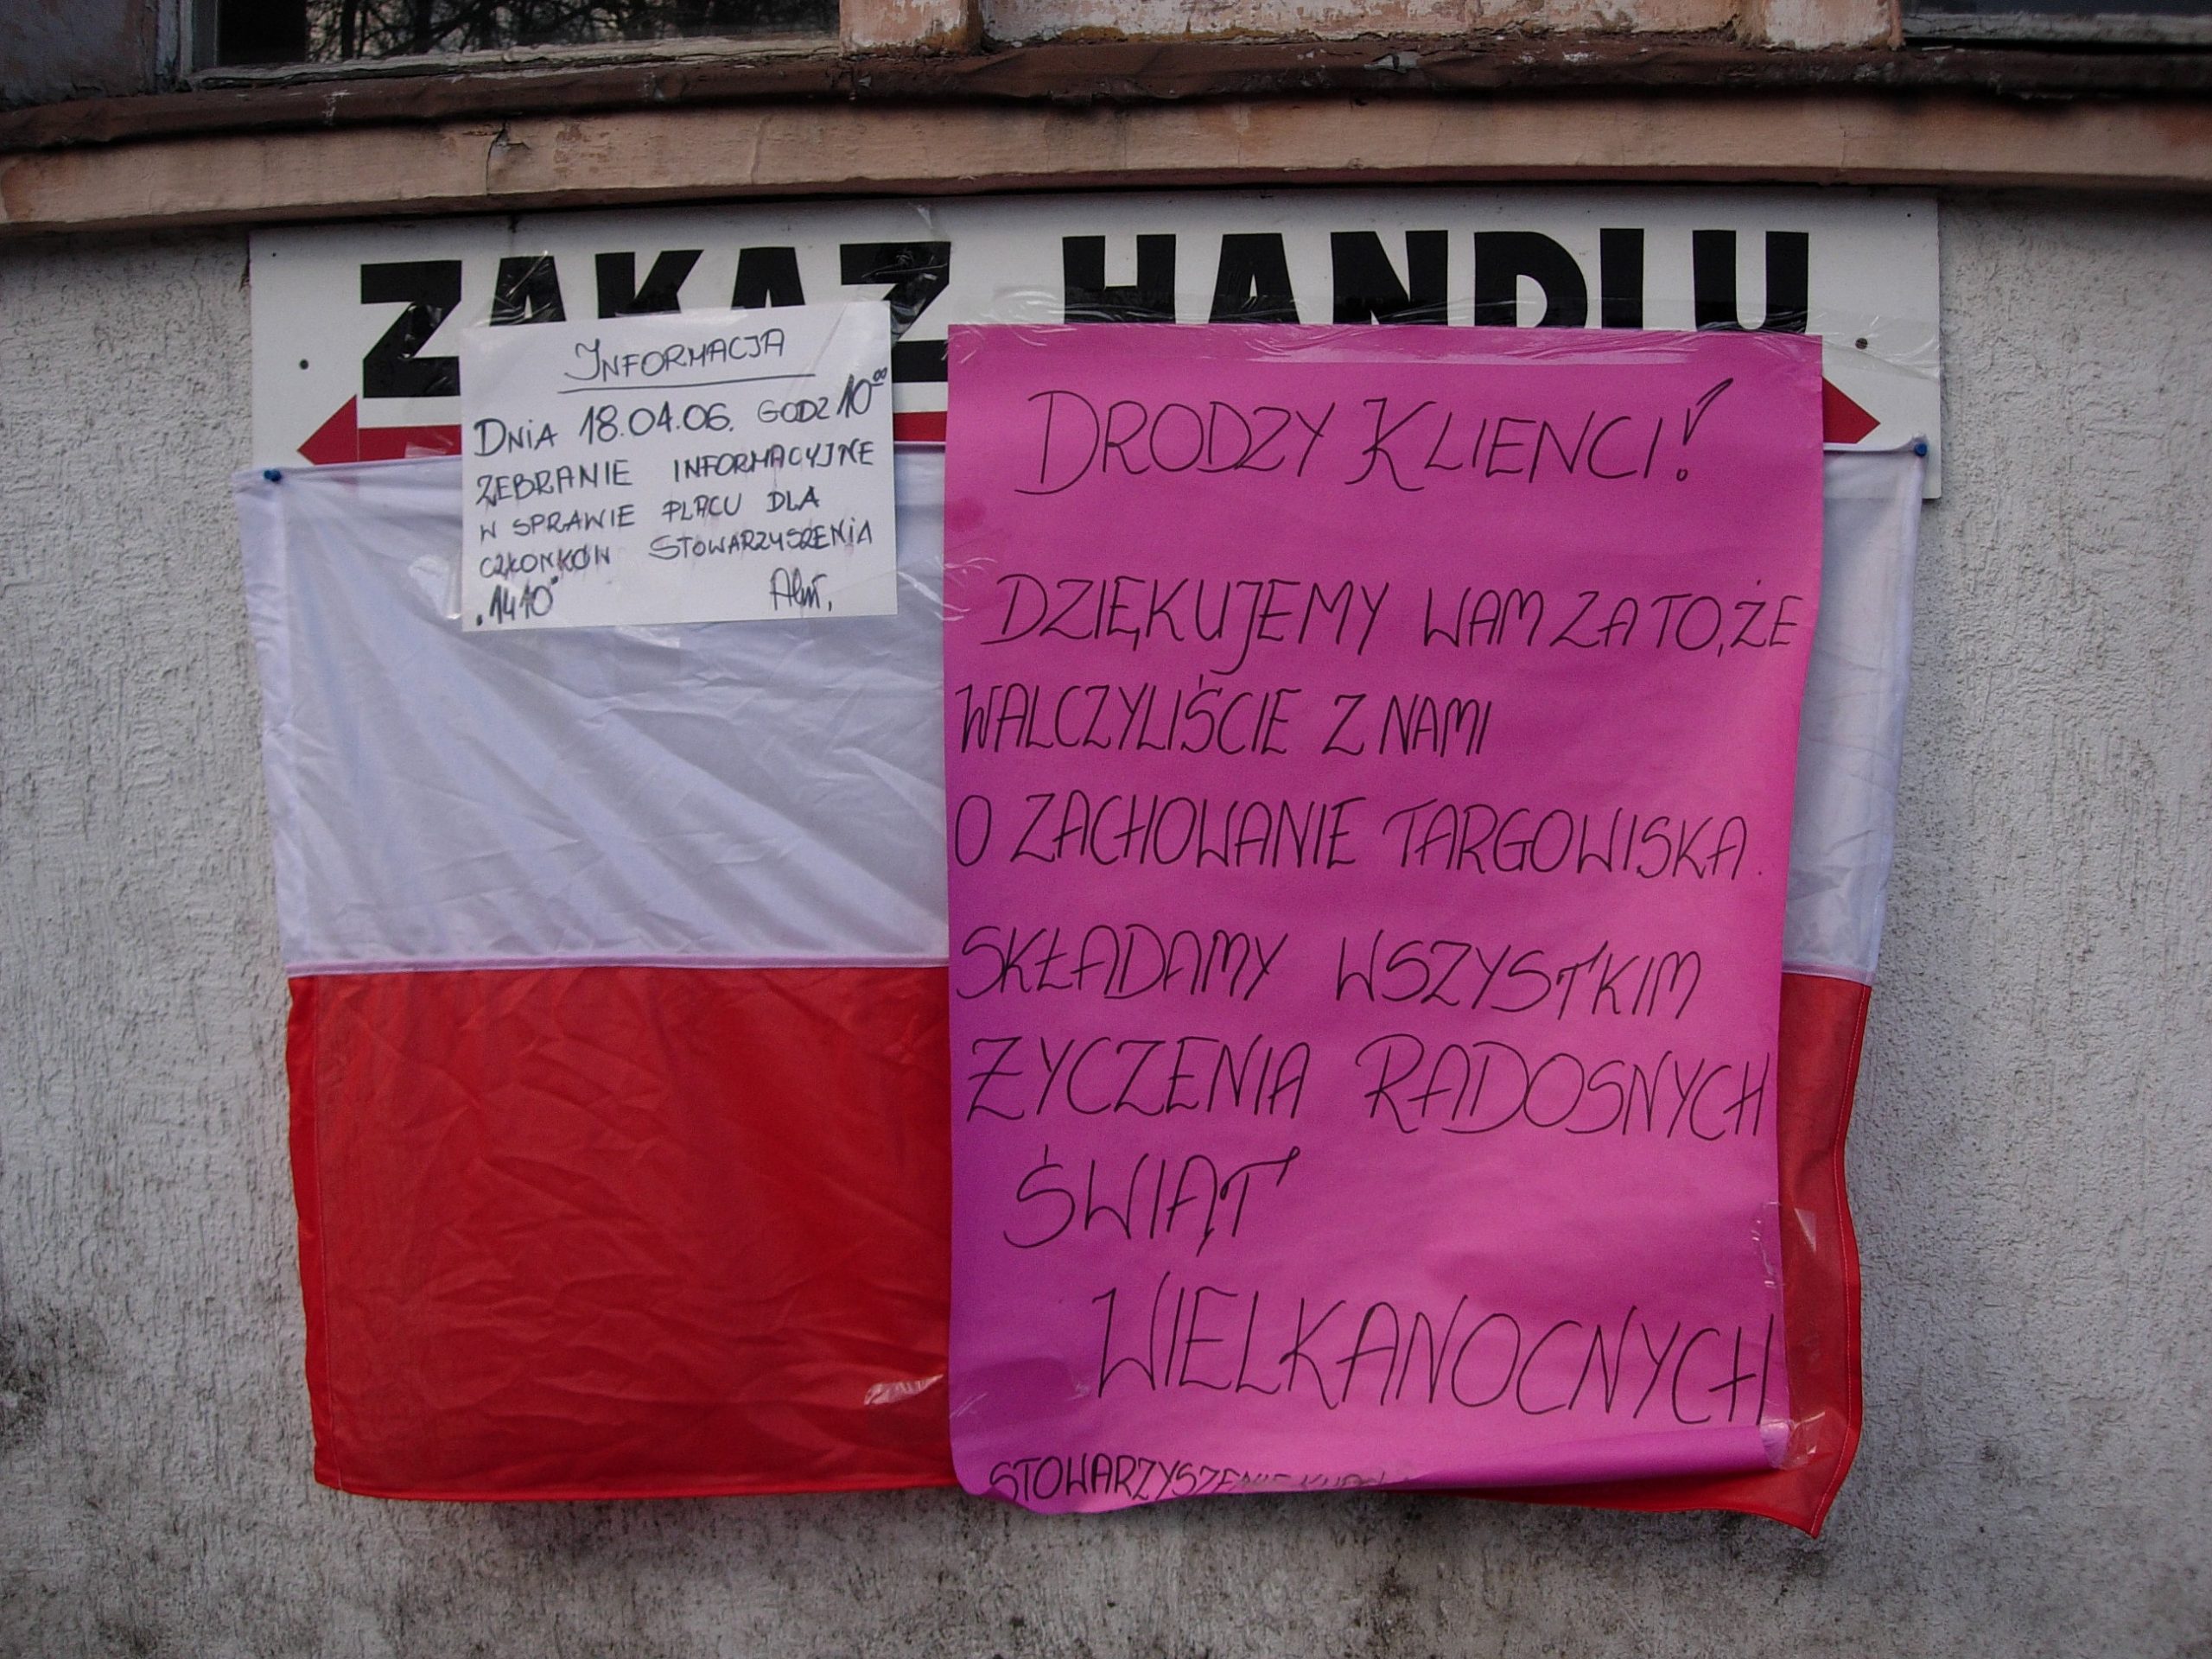 ZAKAZ HANDLU
INFORMACJA
DNIA 18.04.06. GODZ 10⁰⁰
ZEBRANIE INFORMACYJNE
W SPRAWIE PLACU DLA
CZŁONKÓW STOWARZYSZENIA
"1410"
DRODZY KLIENCI!
DZIĘKUJEMY WAM ZA TO, ŻE
WALCZYLIŚCIE Z NAMI
O ZACHOWANIE TARGOWISKA.
SKŁADAMY WSZYSTKIM
ŻYCZENIA RADOSNYCH
ŚWIĄT
WIELKANOCNYCH
STOWARZYSZENIE